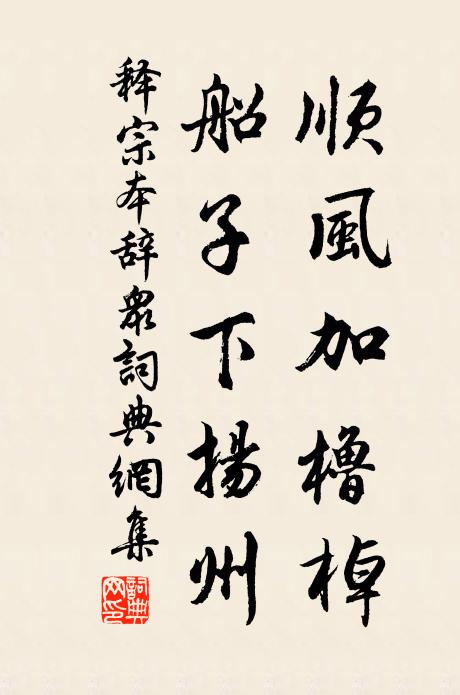 順風加櫓棹
船子下揚州
释宗本辞眾詞典網集
詞典網印